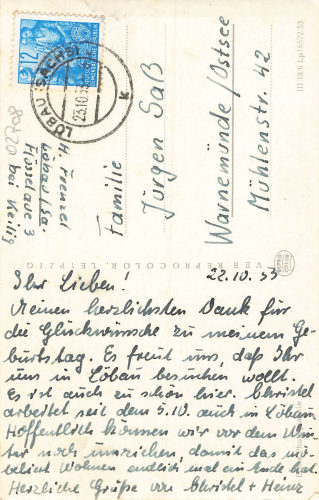 12
DEUTSCHE
DEMOKRATISCHE REPUBLIK
LÖBAU (SACHS)
23.10.53
k
III/18/6 Lp 16522/53
Familie
Jürgen Saß
Warnemünde/Ostsee
Mühlenstr. 42
H. Frenzel
Löbau/Sa.
3
bei Keilig
VEB REPROCOLOR, LEIPZIG
22.10.53
Ihr Lieben!
Meinen herzlichsten Dank für
die Glückwünsche zu meinem Ge-
burtstag. Es freut uns, daß Ihr
uns in Löbau besuchen wollt.
Es ist auch zu schön hier. Christel
arbeitet seit dem 5.10. auch in Löbau.
Hoffentlich können wir vor dem Win-
ter noch umziehen, damit das mö-
belicht Wohnen endlich mal ein Ende hat.
Herzliche Grüße von Christel + Heinz